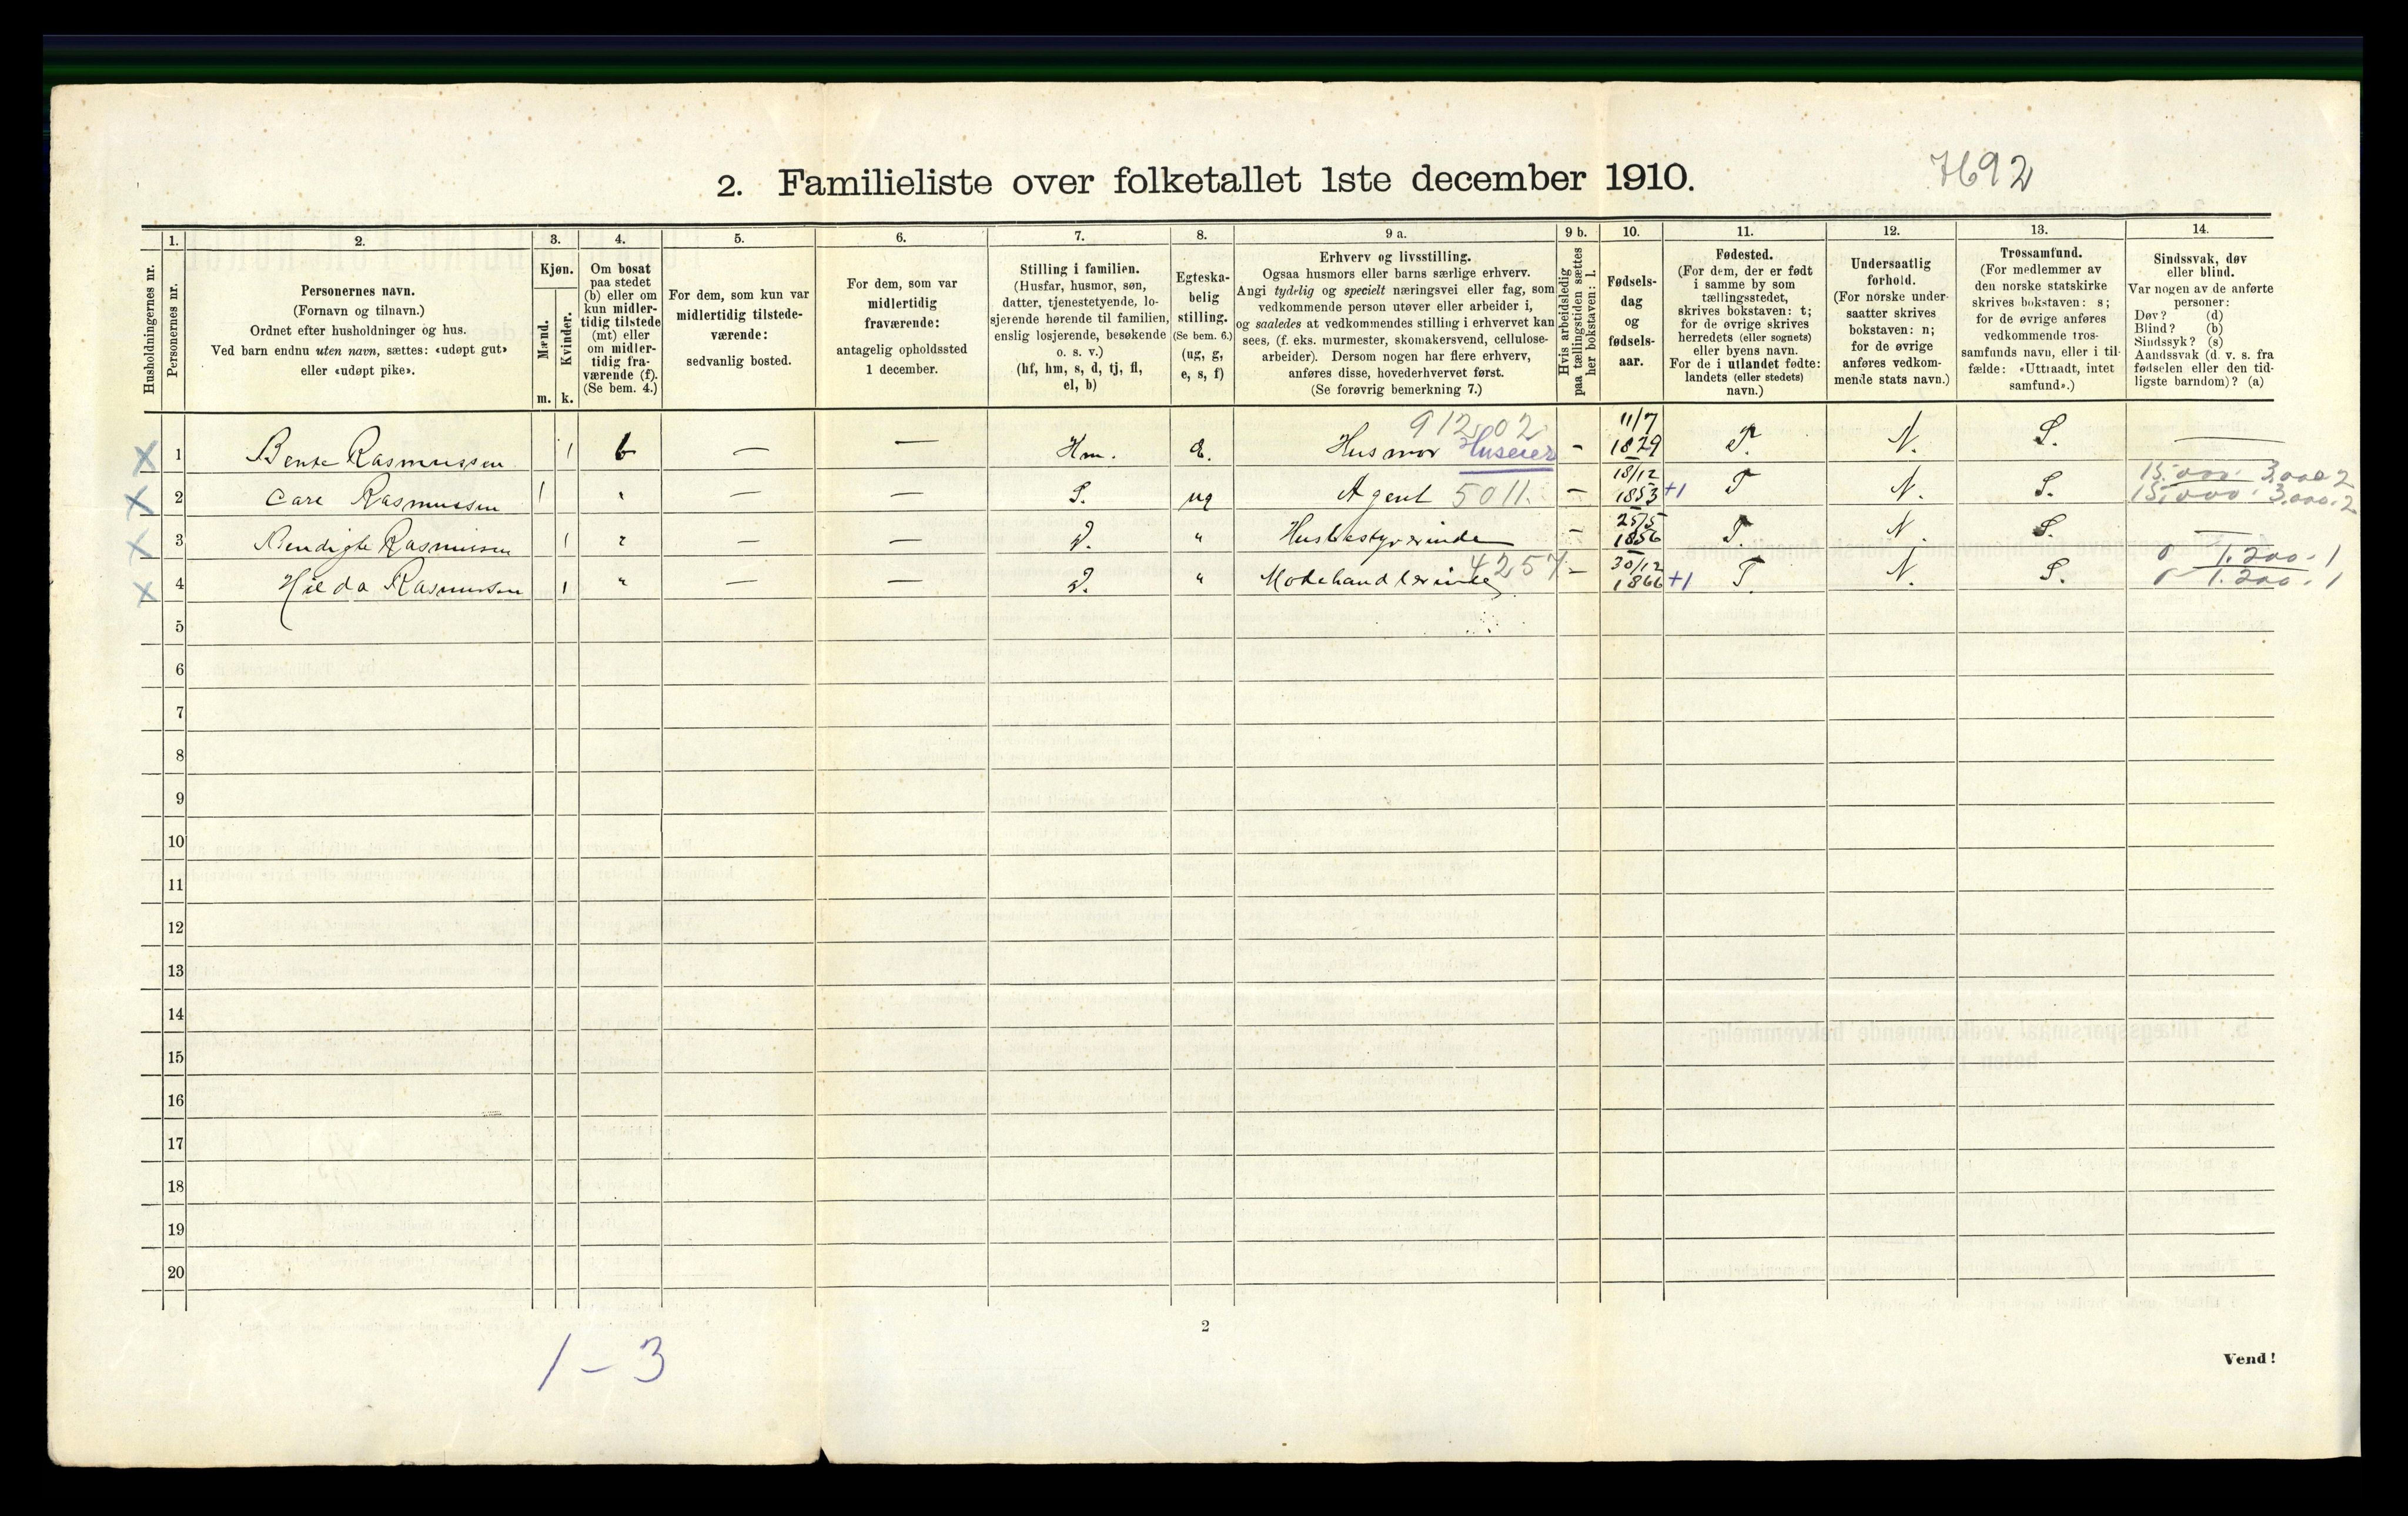 2. Familieliste over folketallet 1ste december 1910.
7692
1. 2. 3. 4. 5. 6. 7. 8. 9 a. 9 b. 10. 11. 12. 13. 14.
Husholdningernes nr.
Personernes nr.
Personernes navn.
(Fornavn og tilnavn.)
Ordnet efter husholdninger og hus.
Ved barn endnu uten navn, sættes: «udøpt gut»
eller «udøpt pike».
Kjøn.
Mænd.
Kvinder.
m. k.
Om bosat
paa stedet
(b) eller om
kun midler-
tidig tilstede
(mt) eller
om midler-
tidig fra-
værende (f).
(Se bem. 4.)
For dem, som kun var
midlertidig tilstede-
værende:
sedvanlig bosted.
For dem, som var
midlertidig
fraværende:
antagelig opholdssted
1 december.
Stilling i familien.
(Husfar, husmor, søn,
datter, tjenestetyende, lo-
sjerende hørende til familien,
enslig losjerende, besøkende
o. s. v.)
(hf, hm, s, d, tj, fl,
el, b)
Egteska-
belig
stilling.
(Se bem. 6.)
(ug, g,
e, s, f)
Erhverv og livsstilling.
Ogsaa husmors eller barns særlige erhverv.
Angi tydelig og specielt næringsvei eller fag, som
vedkommende person utøver eller arbeider i,
og saaledes at vedkommendes stilling i erhvervet kan
sees, (f. eks. murmester, skomakersvend, cellulose-
arbeider). Dersom nogen har flere erhverv,
anføres disse, hovederhvervet først.
(Se forøvrig bemerkning 7.)
Hvis arbeidsledig
paa tællingstiden sættes
her bokstaven: l.
Fødsels-
dag
og
fødsels-
aar.
Fødested.
(For dem, der er født
i samme by som
tællingsstedet,
skrives bokstaven: t;
for de øvrige skrives
herredets (eller sognets)
eller byens navn.
For de i utlandet fødte:
landets (eller stedets)
navn.)
Undersaatlig
forhold.
(For norske under-
saatter skrives
bokstaven: n;
for de øvrige
anføres vedkom-
mende stats navn.)
Trossamfund.
(For medlemmer av
den norske statskirke
skrives bokstaven: s;
for de øvrige anføres
vedkommende tros-
samfunds navn, eller i til-
fælde: «Uttraadt, intet
samfund».)
Sindssvak, døv
eller blind.
Var nogen av de anførte
personer:
Døv? (d)
Blind? (b)
Sindssyk? (s)
Aandssvak (d. v. s. fra
fødselen eller den tid-
ligste barndom)? (a)
912.02
X 1 Bente Rasmussen 1 b — — Hm. E. Husmor Huseier - 11/7 1829 T. N. S. —
X 2 Carl Rasmussen 1 " — — S. ug Agent 5011. - 18/12 1853 +1 T N. S. 15.000. 3.000.2
15.000. 3.000.2
X 3 Bendigte Rasmussen 1 " — — D. " Husbestyrerinde - 25/5 1856 T. N. S. —
X 4 Hilda Rasmussen 1 " — — D. " Motehandlerinde 4257 - 30/12 1866 +1 T. N. S. 0 1.200.1
0 1.200.1
5
6
7
8
9
10
11
12
13
14
15
16
17
18
19
20
1-3
2
Vend!